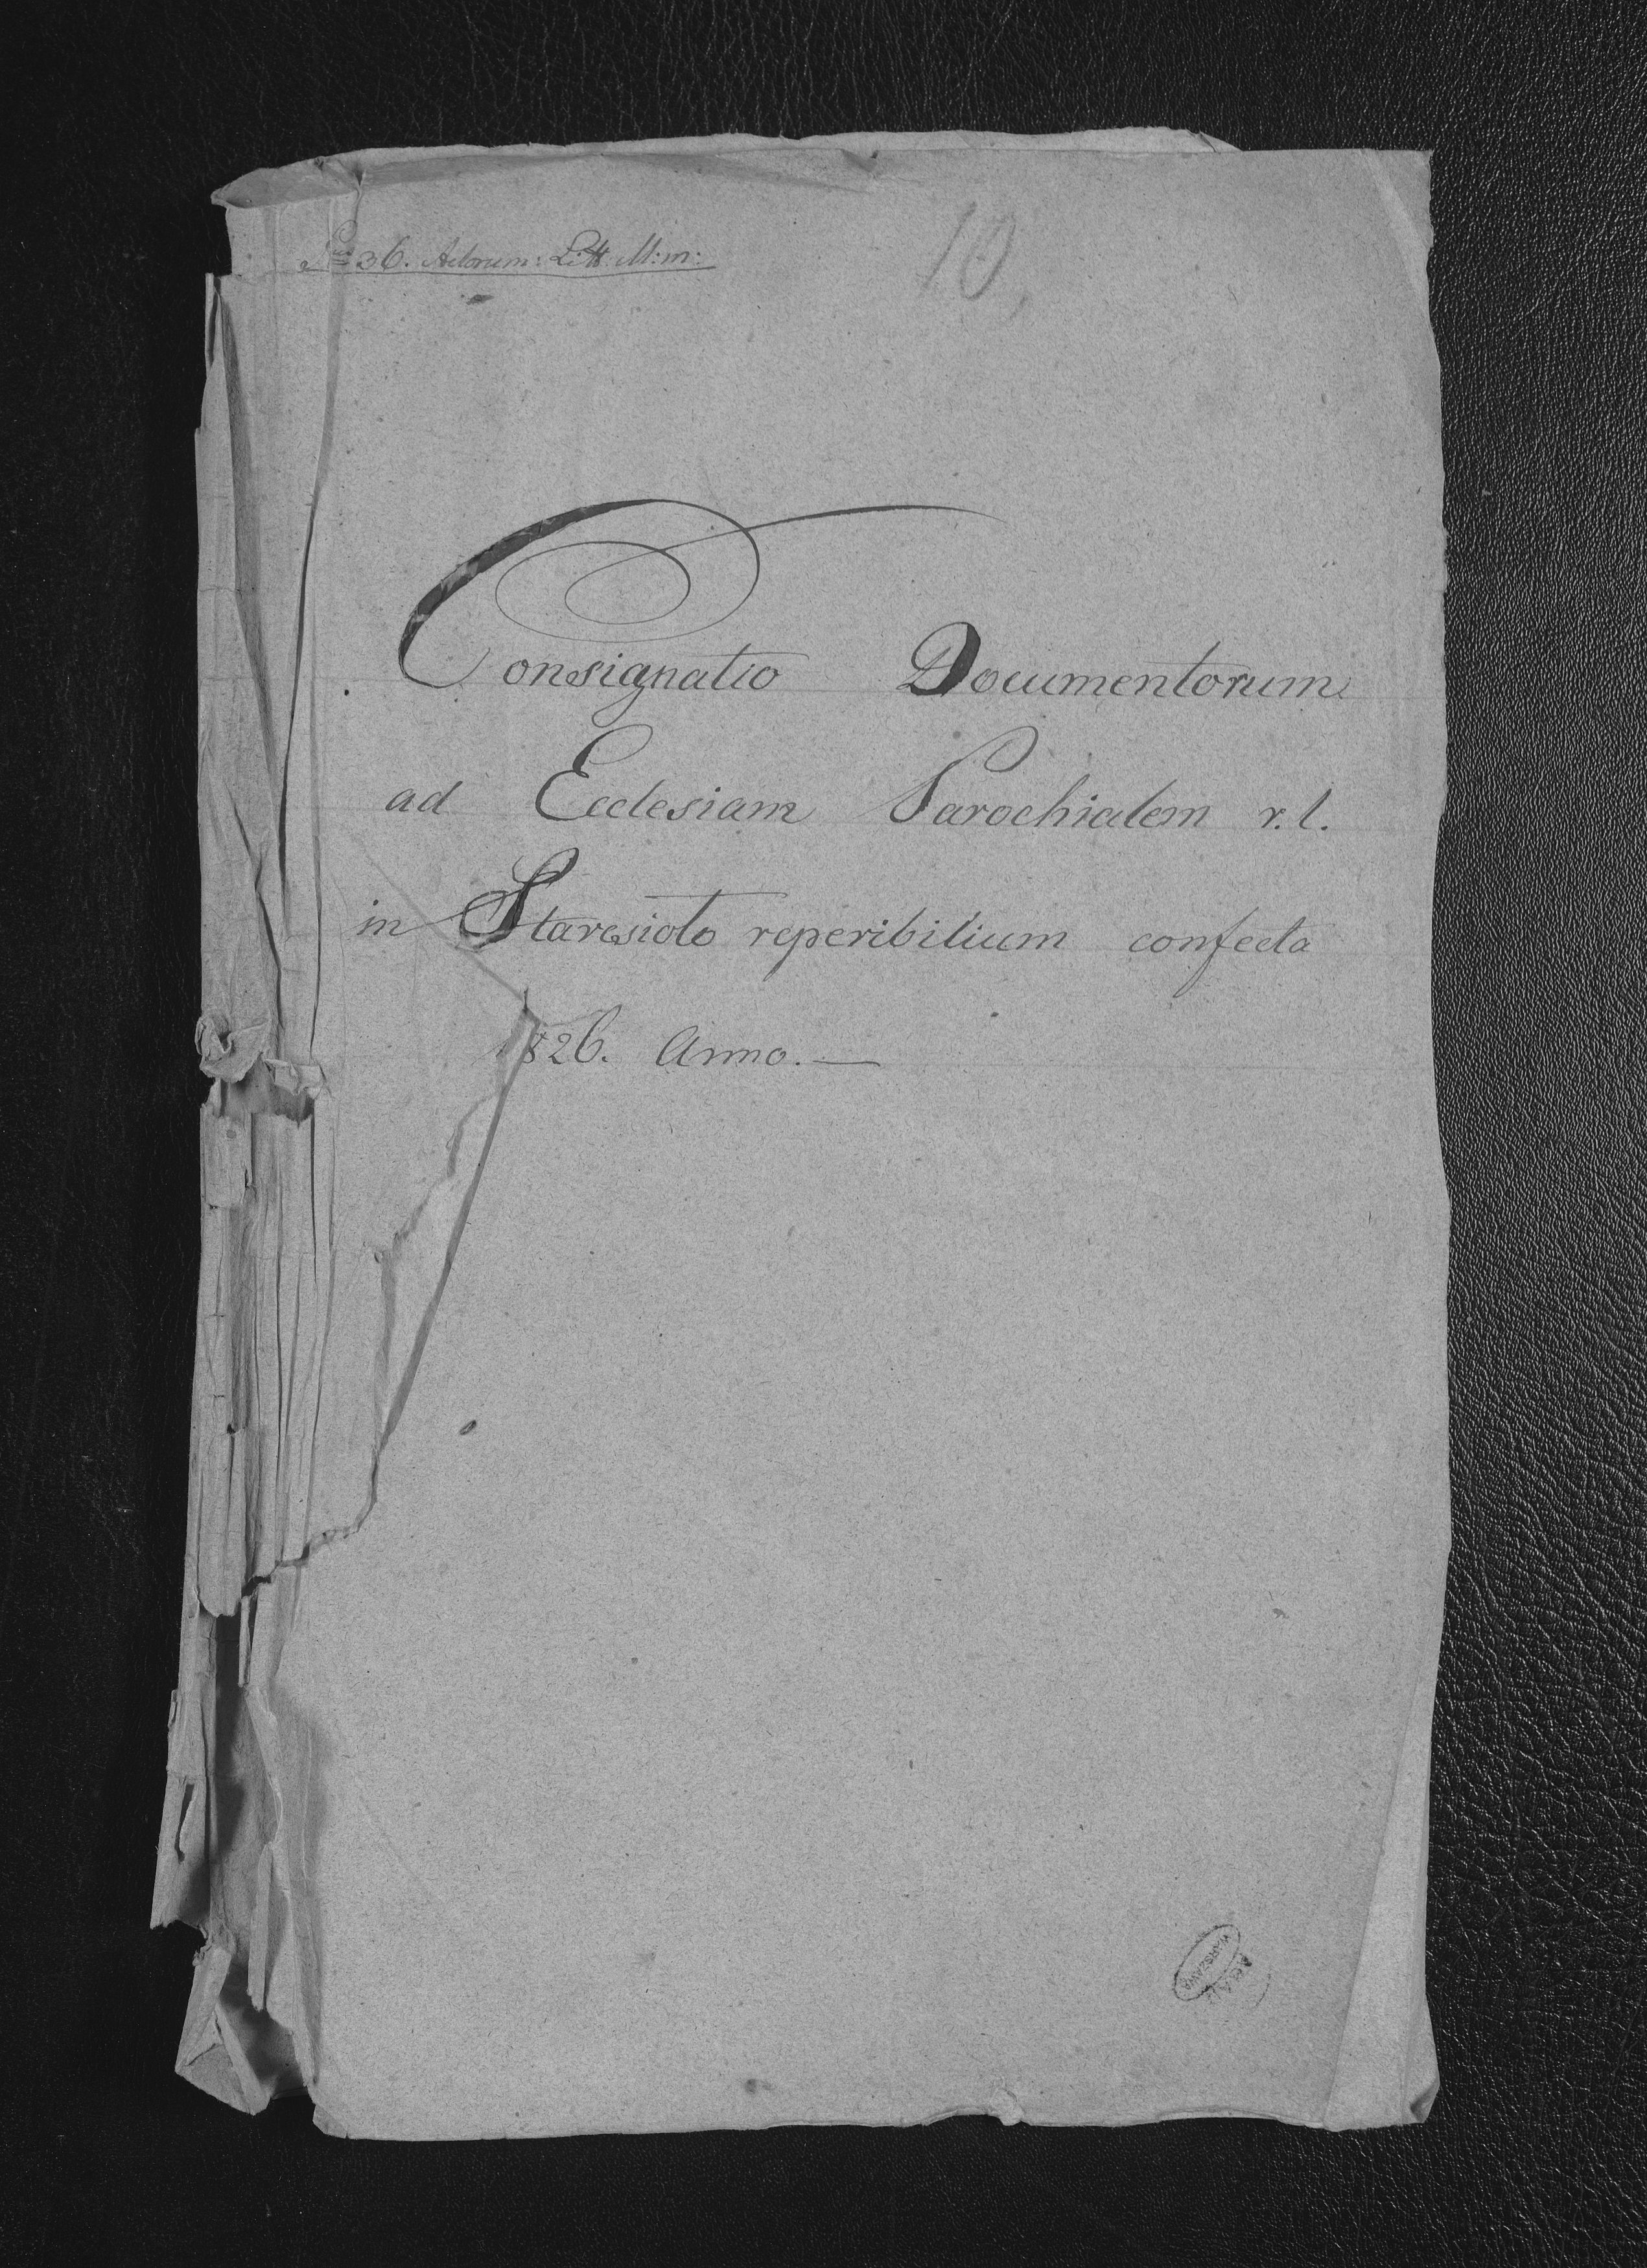 36. Actorum: Litt. M:m:
10,
Consignatio Documentorum
ad Ecclesiam Parochialem r.l.
in Staresioło reperibilium confecta
1826. Anno.—
AGAD
WARSZAWA